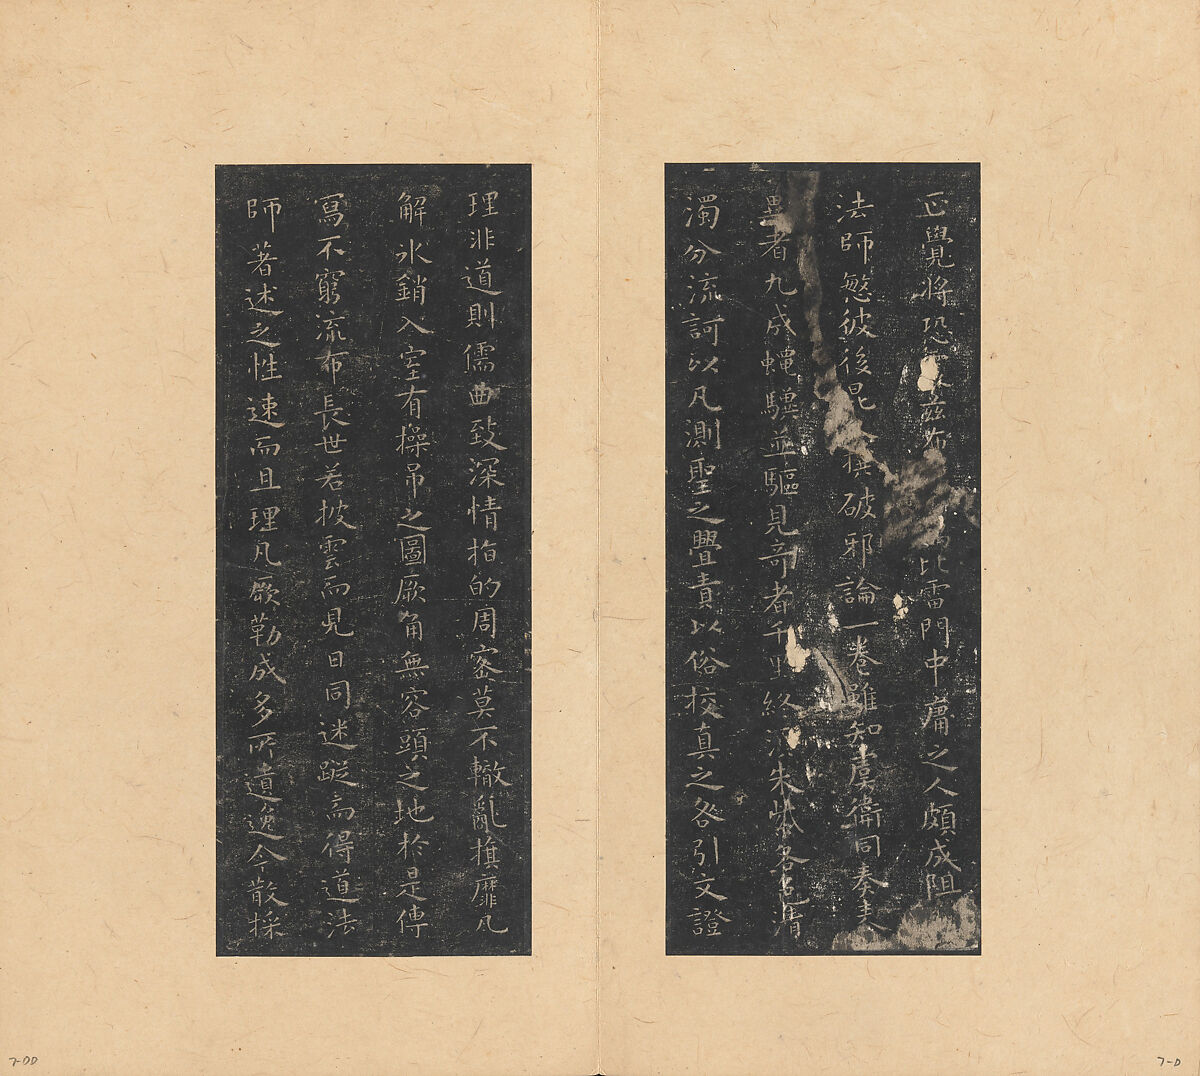 正覺將恐茲布比雷門中庸之人頗成阻
法師愍彼後昆撰破邪論一卷雖知虞衛同奏表
異者九成蠅驥並驅見奇者千里終須朱紫各色清
濁分流訶以凡測聖之舋責以俗校真之咎引文證
理非道則儒曲致深情指的周密莫不轍亂旗靡瓦
解冰銷入室有操吊之圖厥角無容頭之地於是傳
寫不窮流布長世若披雲而見日同迷蹤高得道法
師著述之性速而且理凡厥勒成多所遺逸今散採
7-DD
7-D